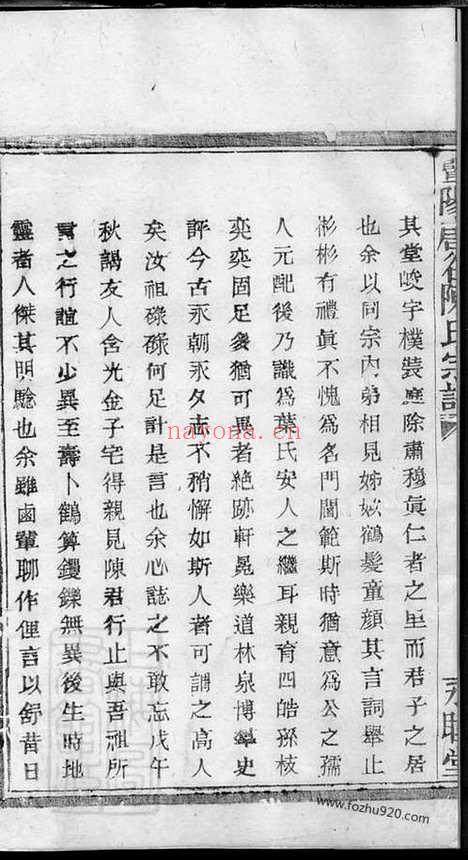 暨陽唐谷陳氏宗譜
永睦堂
其堂峻宇樸裝庭除肅穆眞仁者之里而君子之居
也余以同宗內弟相見姊妷鶴髮童顏其言詞舉止
彬彬有禮眞不愧爲名門閫範斯時猶意爲公之孺
人元配後乃識爲葉氏安人之繼耳親育四皓孫枝
奕奕固足多猶可異者絶跡軒冕樂道林泉博覽史
評今古永朝永夕志不稍懈如斯人者可謂之高人
矣汝祖碌碌何足計是言也余心誌之不敢忘戊午
秋謁友人含光金子宅得親見陳君行止與吾祖所
言之行誼不少異至壽卜鶴算钁鑠無異後生時地
靈者人傑其明驗也余雖鹵輩聊作俚言以舒昔日
nayona.cn
www.fozhu920.com